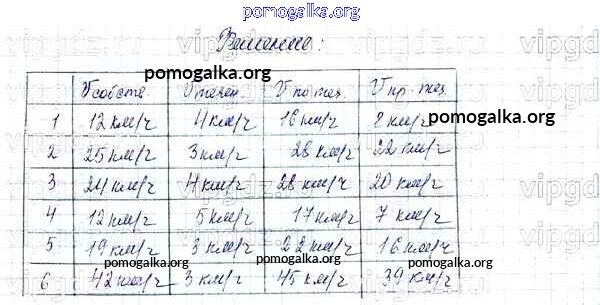 pomogalka.org
Решение:
V собств. V течен. V по теч. V пр. теч.
pomogalka.org
1 12 км/ч 4 км/ч 16 км/ч 8 км/ч
pomogalka.org
2 25 км/ч 3 км/ч 28 км/ч 22 км/ч
3 24 км/ч 4 км/ч 28 км/ч 20 км/ч
4 12 км/ч 5 км/ч 17 км/ч 7 км/ч
5 19 км/ч 3 км/ч 22 км/ч 16 км/ч
pomogalka.org pomogalka.org
6 42 км/ч 3 км/ч 45 км/ч 39 км/ч